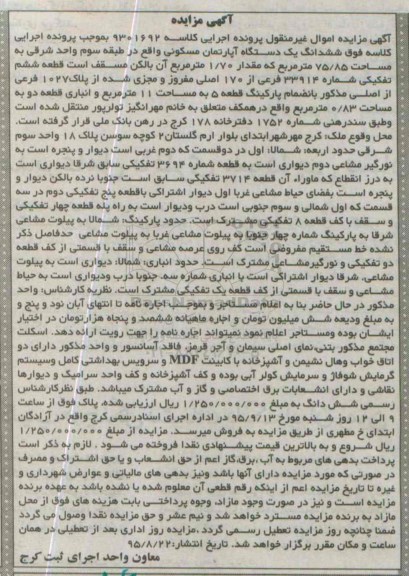 آگهی مزایده
آگهی مزایده اموال غیرمنقول پرونده اجرایی کلاسه ۹۳۰۱۶۹۲ بموجب پرونده اجرایی
کلاسه فوق ششدانگ یک دستگاه آپارتمان مسکونی واقع در طبقه سوم واحد شرقی به
مساحت ۷۵/۸۵ مترمربع که مقدار ۱/۷۰ مترمربع آن بالکن مسقف است قطعه ششم
تفکیکی شماره ۳۳۹۱۴ فرعی از ۱۷۰ اصلی مفروز و مجزی شده از پلاک۱۰۲۷ فرعی
از اصلی مذکور بانضمام پارکینگ قطعه ۵ به مساحت ۱۱ مترمربع و انباری قطعه دو به
مساحت ۰/۸۳ مترمربع واقع درهمکف متعلق به خانم مهرانگیز تولرپور منتقل شده است
وطبق سندرهنی شماره ۱۷۵۲ دفترخانه ۱۷۸ کرج در رهن بانک ملی قرار گرفته است.
محل وقوع ملک: کرج مهرشهرابتدای بلوار ارم گلستان۲ کوچه سوسن پلاک ۱۸ واحد سوم
شرقی حدود اربعه: شمالا: اول در دوقسمت که دوم غربی است دیوار و پنجره است به
نورگیر مشاعی دوم دیواری است به قطعه شماره ۳۶۹۴ تفکیکی سابق شرقا دیواری است
به درز انقطاع که ماوراء آن قطعه ۳۷۱۴ تفکیکی سابق است جنوبا نرده بالکن دیوار و
پنجره است بفضای حیاط مشاعی غربا اول دیوار اشتراکی باقطعه پنج تفکیکی دوم در سه
قسمت که اول شمالی و سوم جنوبی است درب ودیوار است به راه پله قطعه چهار تفکیکی
و سقف با کف قطعه ۸ تفکیکی مشترک است. حدود پارکینگ: شمالا به پیلوت مشاعی
شرقا به پارکینگ شماره چهار جنوبا به پیلوت مشاعی غربا به پیلوت مشاعی حدفاصل ذکر
نشده خط مستقیم مفروضی است کف روی عرصه مشاعی و سقف با قسمتی از کف قطعه
دو تفکیکی و نورگیرمشاعی مشترک است. حدود انباری: شمالا: دیواری است به پیلوت
مشاعی، شرقا دیوار اشتراکی است با انباری شماره سه. جنوبا درب ودیواری است به حیاط
مشاعی و سقف با قسمتی از کف قطعه یک تفکیکی مشترک است. نظریه کارشناس: واحد
مذکور در حال حاضر بنا به اعلام مستاجر و بموجب اجاره نامه تا انتهای آبان نود و پنج و
به مبلغ ودیعه شش میلیون تومان و اجاره ماهیانه ششصد و پنجاه هزارتومان در اختیار
ایشان بوده ومستاجر اعلام نمود نمیتواند اجاره نامه را جهت رویت ارائه دهد. اسکلت
مجتمع مذکور بتنی،نمای اصلی سیمان و آجر قرمز فاقد آسانسور و واحد مذکور دارای دو
اتاق خواب وهال نشیمن و آشپزخانه با کابینت MDF و سرویس بهداشتی کامل وسیستم
گرمایش شوفاژ و سرمایش کولر آبی بوده و کف آشپزخانه و کف واحد سرامیک و دیوارها
نقاشی و دارای انشعابات برق اختصاصی و گاز و آب مشترک میباشد. طبق نظرکارشناس
رسمی شش دانگ به مبلغ ۱/۲۵۰/۰۰۰/۰۰۰ ریال ارزیابی شده. پلاک فوق از ساعت
۹ الی ۱۲ روز شنبه مورخ ۹۵/۹/۱۳ در اداره اجرای اسنادرسمی کرج واقع در آزادگان
ابتدای خ مطهری از طریق مزایده به فروش میرسد. مزایده از مبلغ ۱/۲۵۰/۰۰۰/۰۰۰
ریال شروع و به بالاترین قیمت پیشنهادی نقدا فروخته می شود . لازم به ذکر است
پرداخت بدهی های مربوط به آب ،برق،گاز اعم از حق انشعاب و یا حق اشتراک و مصرف
در صورتی که مورد مزایده دارای آنها باشد ونیز بدهی های مالیاتی و عوارض شهرداری و
غیره تا تاریخ مزایده اعم از اینکه رقم قطعی آن معلوم شده یا نشده باشد به عهده برنده
مزایده است و نیز در صورت وجود مازاد، وجوه پرداختی بابت هزینه های فوق از محل
مازاد به برنده مزایده مسترد خواهد شد و نیم عشر و حق مزایده نقدا وصول می گردد
ضمنا چنانچه روز مزایده تعطیل رسمی گردد ،مزایده روز اداری بعد از تعطیلی در همان
ساعت و مکان مقرر برگزار خواهد شد. تاریخ انتشار:۹۵/۸/۲۲
معاون واحد اجرای ثبت کرج